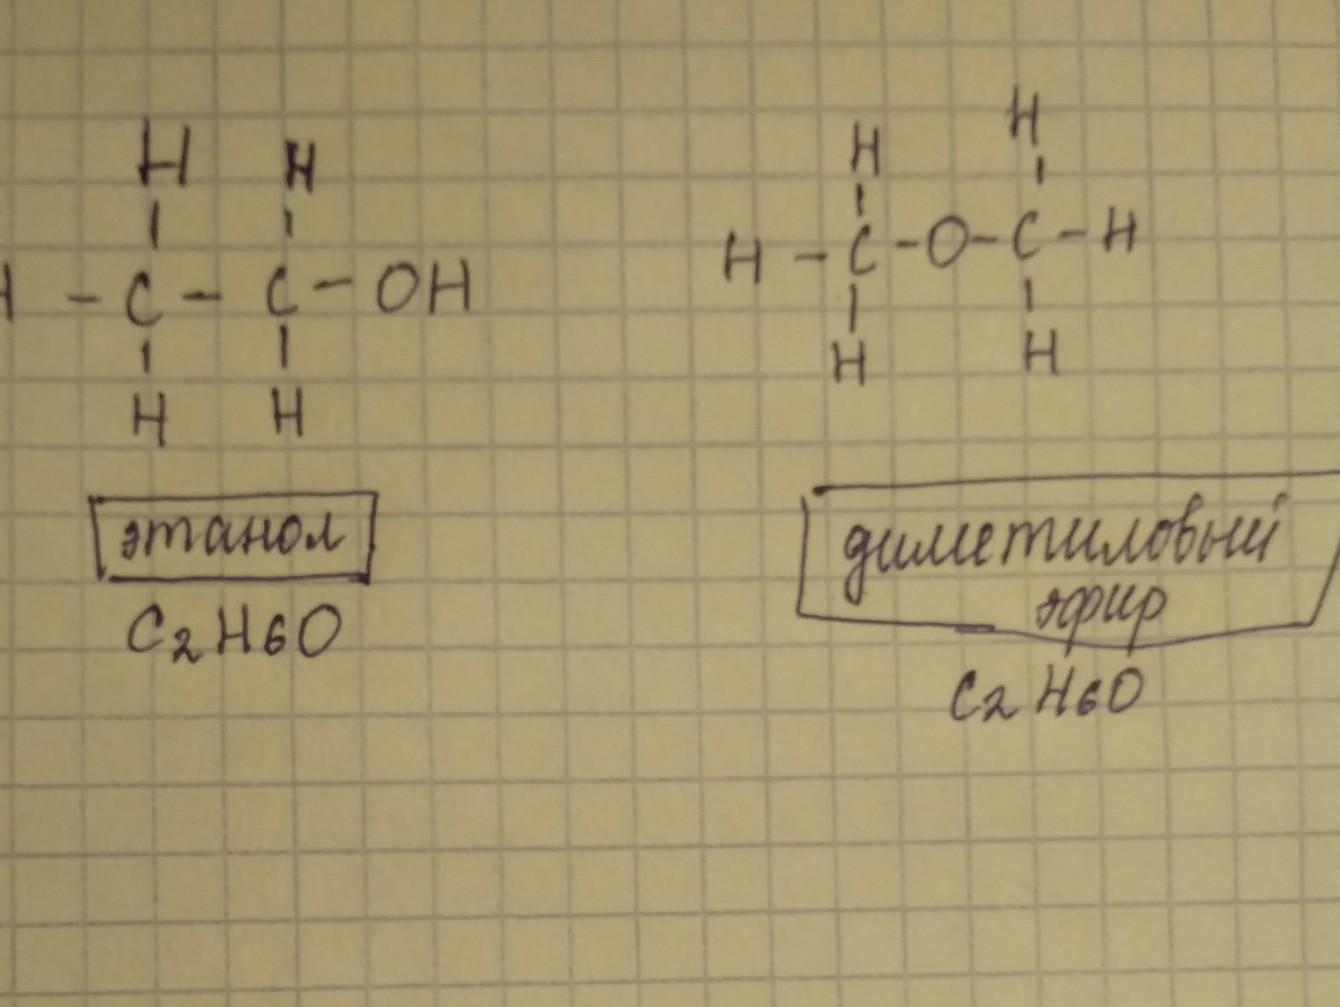 H H
H - C - C - OH
H H
этанол
C2H6O
H H
H - C - O - C - H
H H
диметиловый
эфир
C2H6O